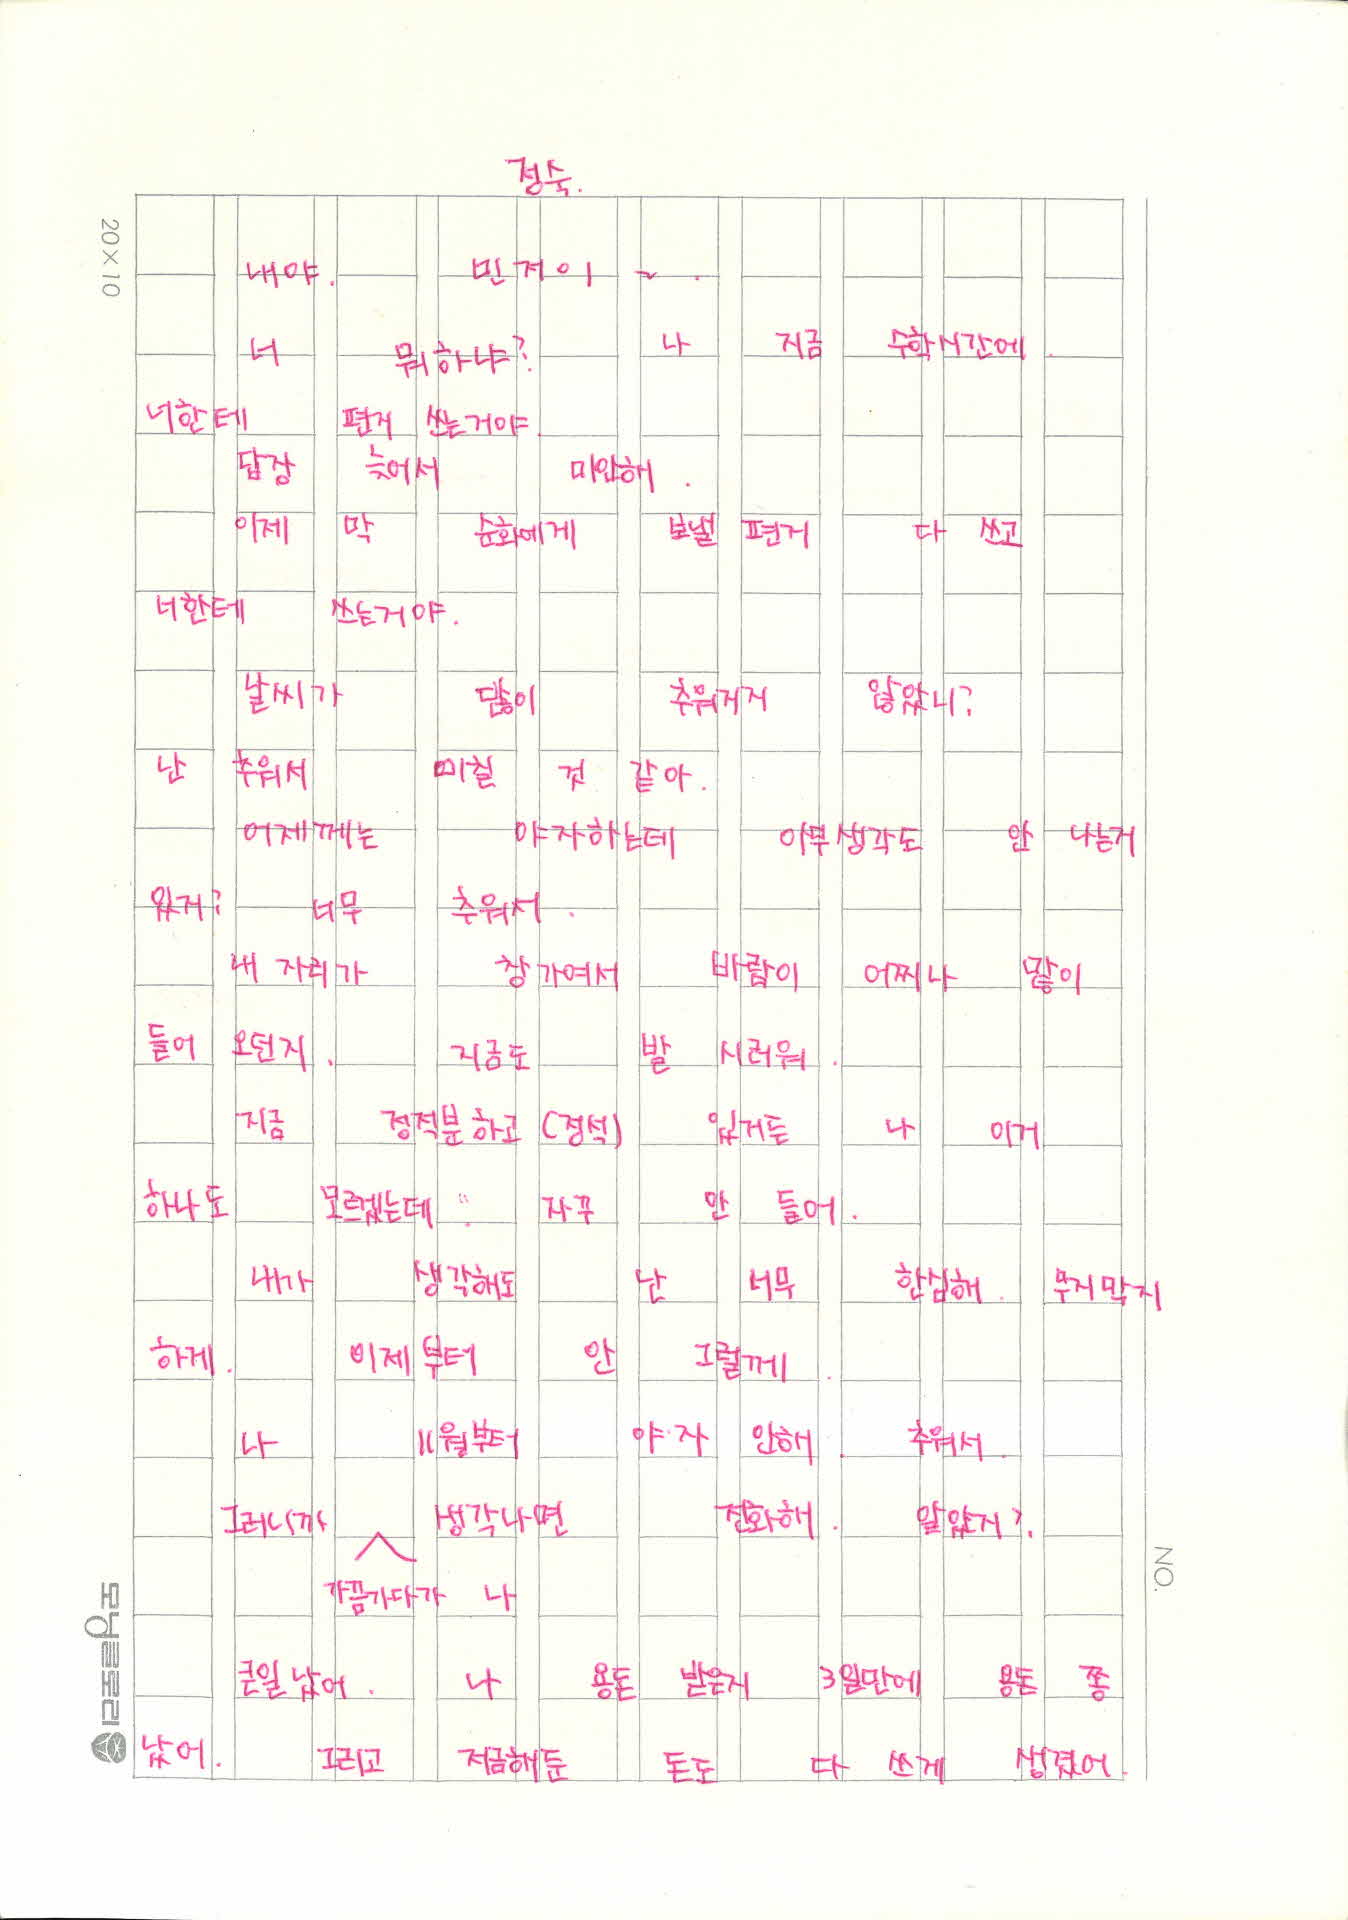 정숙.
20×10
내야. 민저이 ~.
너 뭐하냐? 나 지금 수학시간에.
너한테 편지 쓰는거야.
답장 늦어서 미안해.
이제 막 순화에게 보낼 편지 다 쓰고
너한테 쓰는거야.
날씨가 많이 추워지지 않았니?
난 추워서 미칠 것 같아.
어제께는 야자하는데 아무생각도 안 나는거
있지? 너무 추워서.
내 자리가 창가여서 바람이 어찌나 많이
들어 오던지. 지금도 발 시려워.
지금 정적분하고 (정석) 있거든 나 이거
하나도 모르겠는데 자꾸 안 들어.
내가 생각해도 난 너무 한심해. 무지막지
하게. 이제부터 안 그럴께.
나 11월부터 야자 안해. 추워서.
그러니까 생각나면 전화해. 알았지?
가끔가다가 나
큰일났어. 나 용돈 받은지 3일만에 용돈 쫑
났어. 그리고 저금해둔 돈도 다 쓰게 생겼어.
NO.
모닝글로리